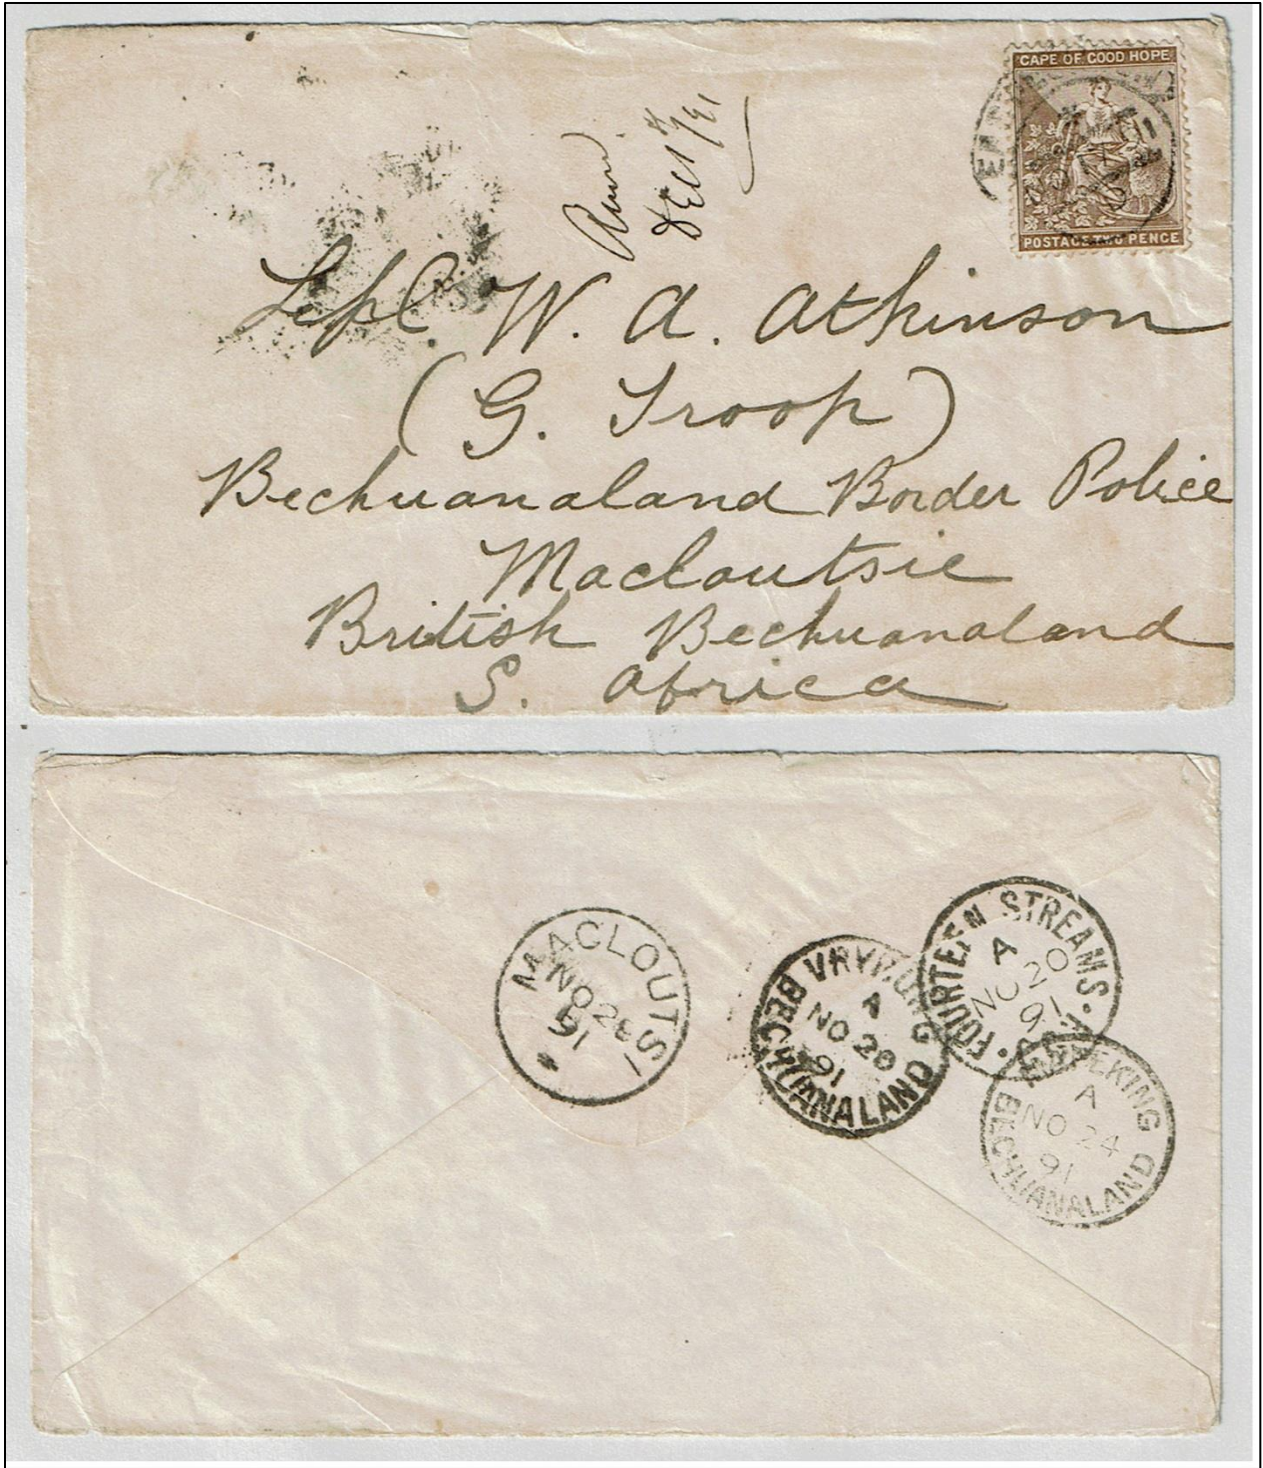 CAPE OF GOOD HOPE
POSTAGE TWO PENCE
DEC 1st/91
W. A. Atkinson
(G. Troop)
Bechuanaland Border Police
Macloutsie
British Bechuanaland
S. Africa
MACLOUTSI
NO 28
91
VRYBURG
A
NO 20
91
BECHUANALAND
FOURTEEN STREAMS
A
NO 20
91
MAFEKING
A
NO 24
91
BECHUANALAND